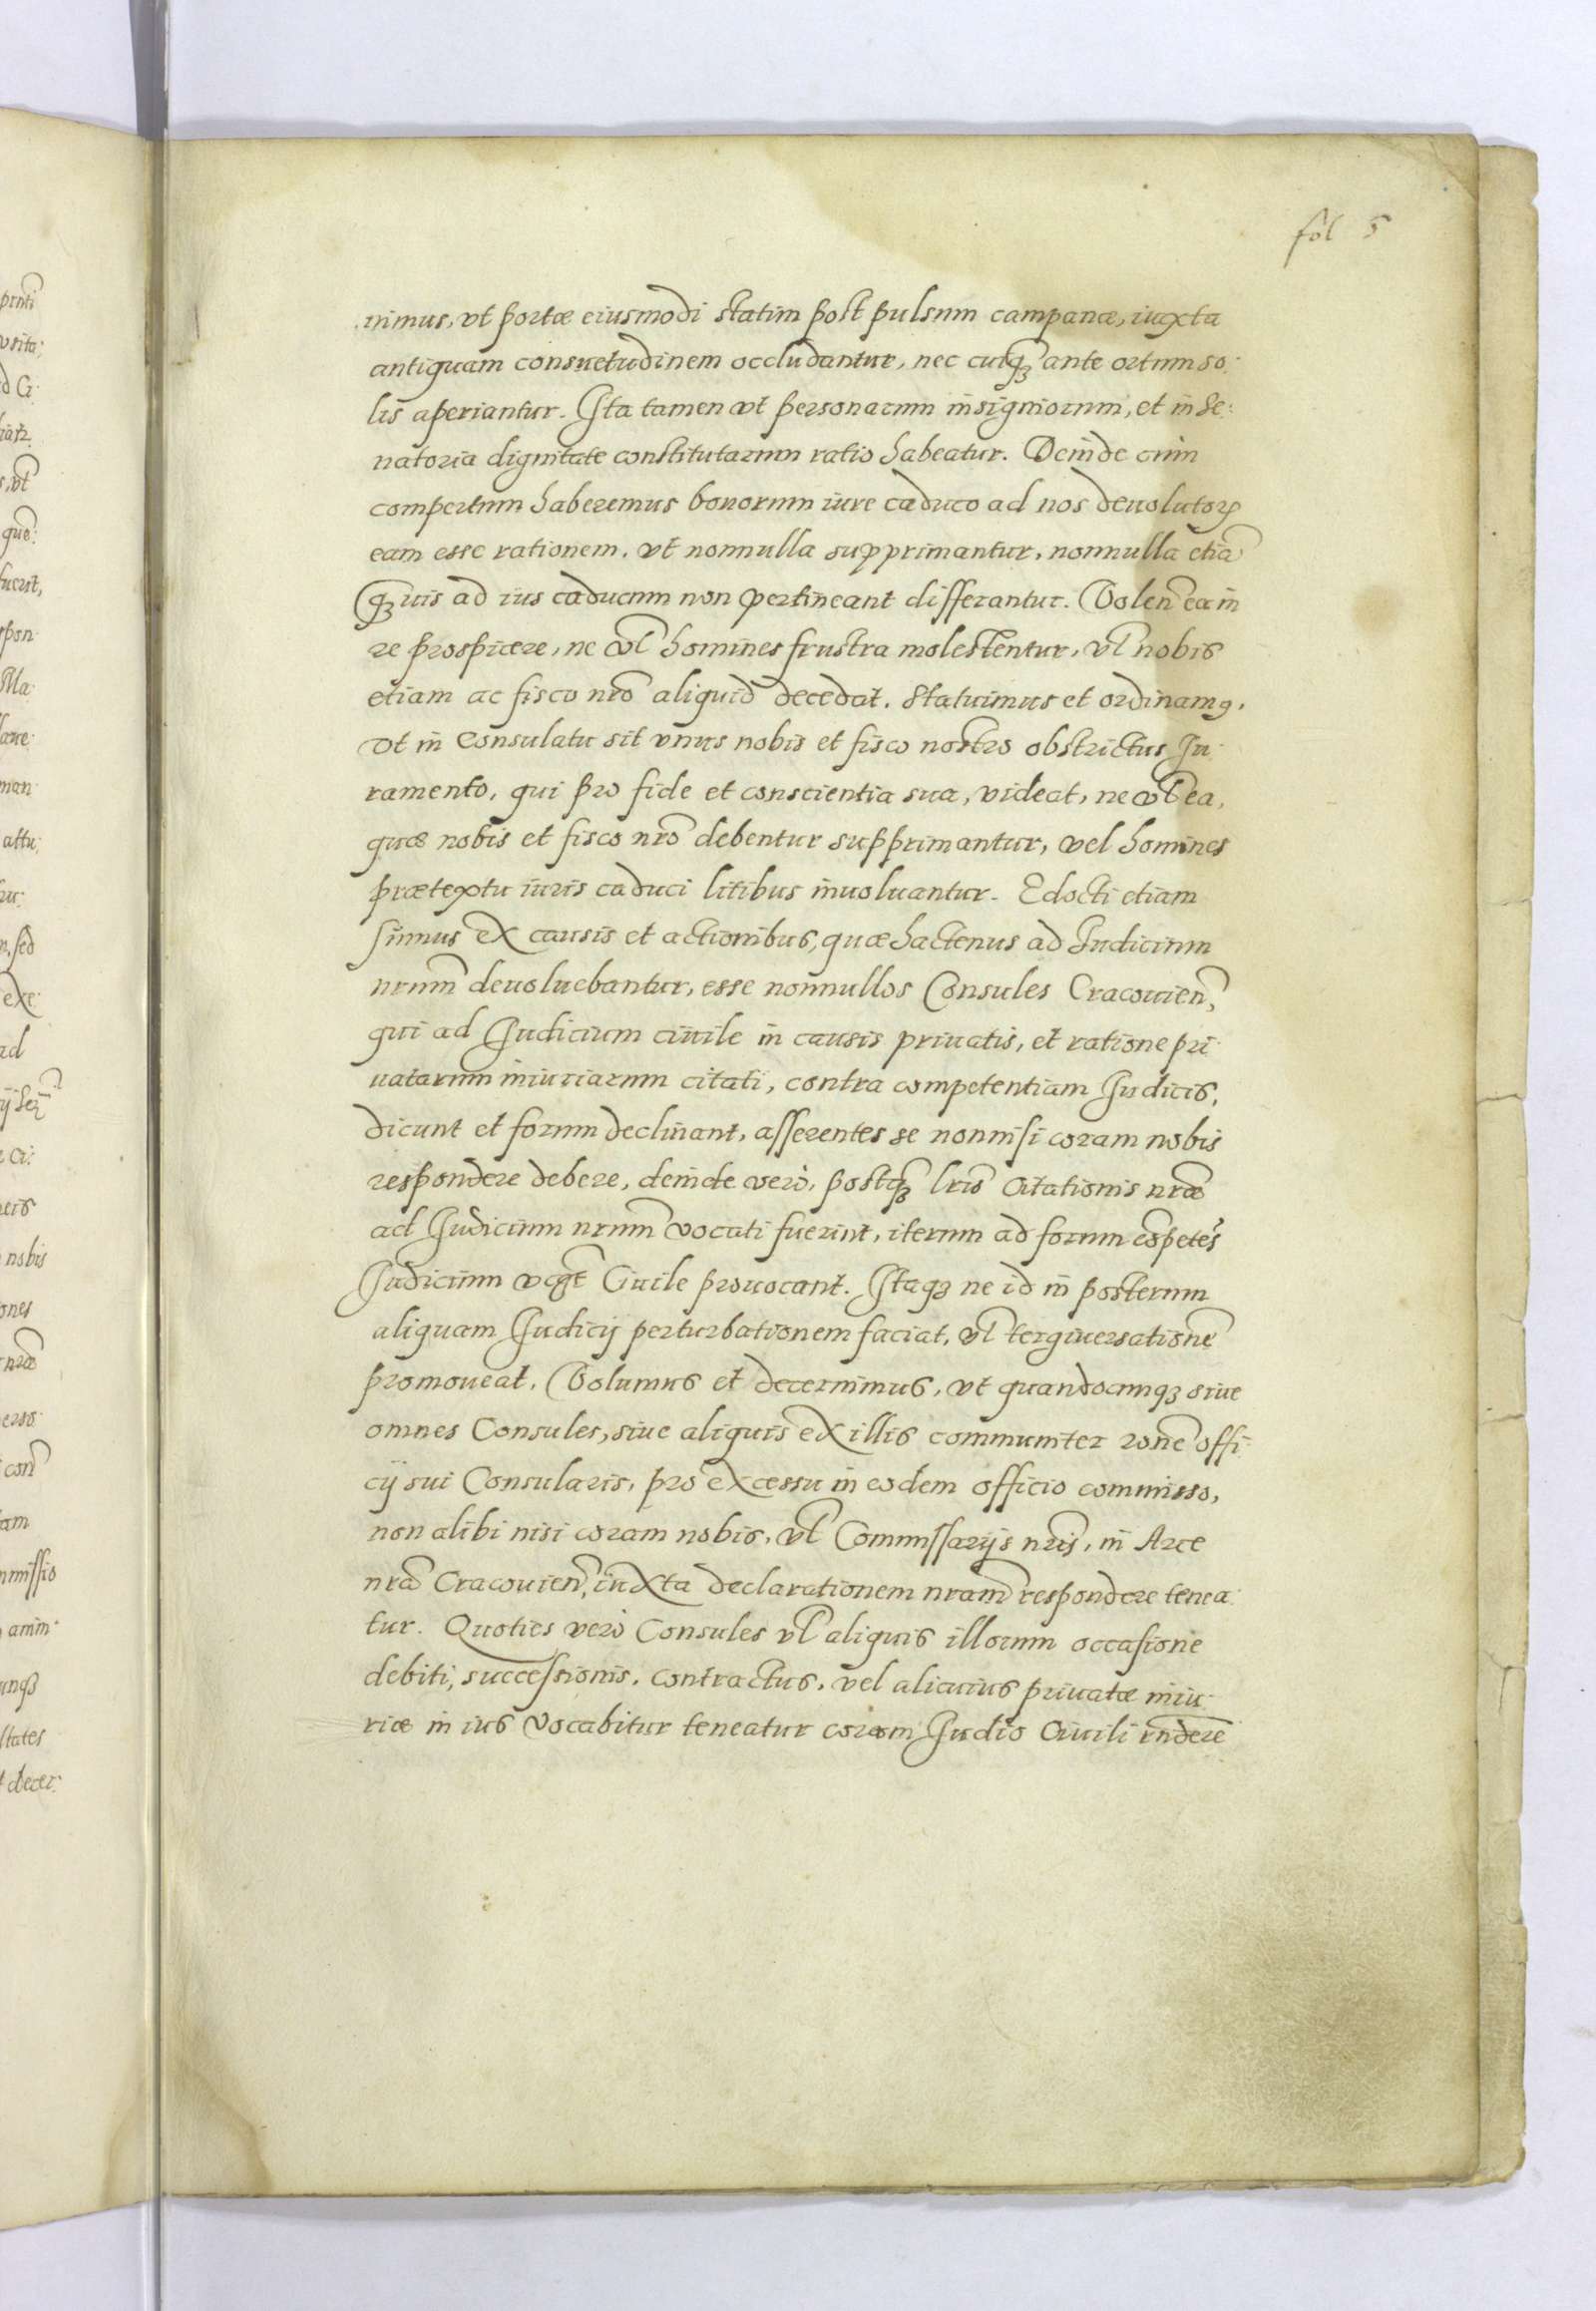 fol 5
nimus, vt portæ eiusmodi statim post pulsum campanæ, iuxta
antiquam consuetudinem occludantur, nec cuiq̃ȝ ante ortum so:
lis aperiantur. Ita tamen vt personarum insigniorum, et in Se:
natoria dignitate constitutarum ratio habeatur. Deinde cum
compertum haberemus bonorum iure caduco ad nos deuolutoꝝ
eam esse rationem, vt nonnulla supprimantur, nonnulla etiã
q̃ȝuis ad ius caducum non pertineant differantur. Volen̄ ea in
re prospicere, ne vl̄ homines frustra molestentur, vl̄ nobis
etiam ac fisco nr̄o aliquid decedat. Statuimus et ordinamꝰ,
vt in Consulatu sit vnus nobis et fisco nostro obstrictus Iu:
ramento, qui pro fide et conscientia sua, videat, ne vl̄ ea,
quæ nobis et fisco nr̄o debentur supprimantur, vel homines
prætextu iuris caduci litibus inuoluantur. Edocti etiam
sumus ex causis et actionibus, quæ hactenus ad Iudicium
nr̄um deuoluebantur, esse nonnullos Consules Cracouien̄,
qui ad Iudicium ciuile in causis priuatis, et ratione pri:
uatarum iniuriarum citati, contra competentiam Iudicis,
dicunt et forum declinant, asserentes se nonnisi coram nobis
respondere debere, deinde verò, postq̃ȝ lr̄is Citationis nr̄æ
ad Iudicium nr̄um vocati fuerint, iterum ad forum cōpetēs
Iudicium vcȝt Ciuile prouocant. Itaqȝ ne id in posterum
aliquam Iudicij perturbationem faciat, vl̄ tergiuersationē
promoueat. Volumus et decernimus, vt quandocunqȝ siue
omnes Consules, siue aliquis ex illis communiter rōne offi:
cij sui Consularis, pro excessu in eodem officio commisso,
non alibi nisi coram nobis, vl̄ Commissarijs nr̄is, in Arce
nr̄a Cracouien̄, iuxta declarationem nr̄am respondere tenea:
tur. Quoties verò Consules vl̄ aliquis illorum occasione
debiti, successionis, contractus, vel alicuius priuatæ iniu:
riæ in ius vocabitur teneatur coram Iudio Ciuili rn̄dere